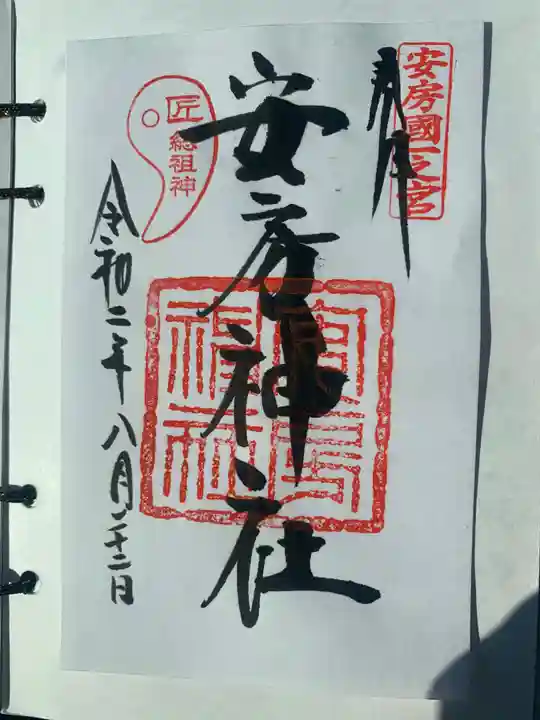 安房國一之宮
奉拝
安房神社
匠
総祖神
安房神社
令和二年八月二十二日